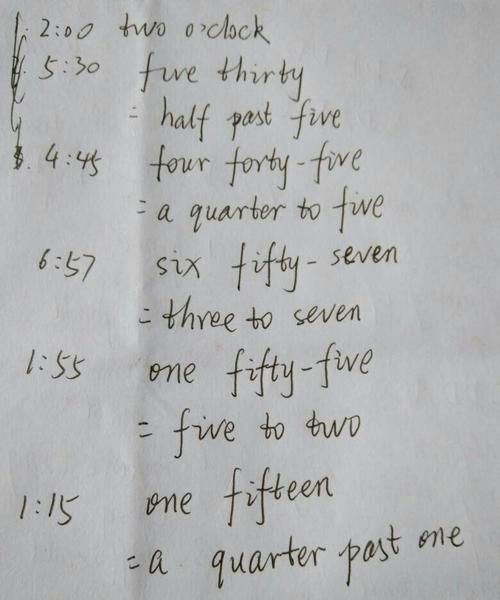 2:00 two o'clock
5:30 five thirty
= half past five
4:45 four forty-five
= a quarter to five
6:57 six fifty-seven
= three to seven
1:55 one fifty-five
= five to two
1:15 one fifteen
= a quarter past one